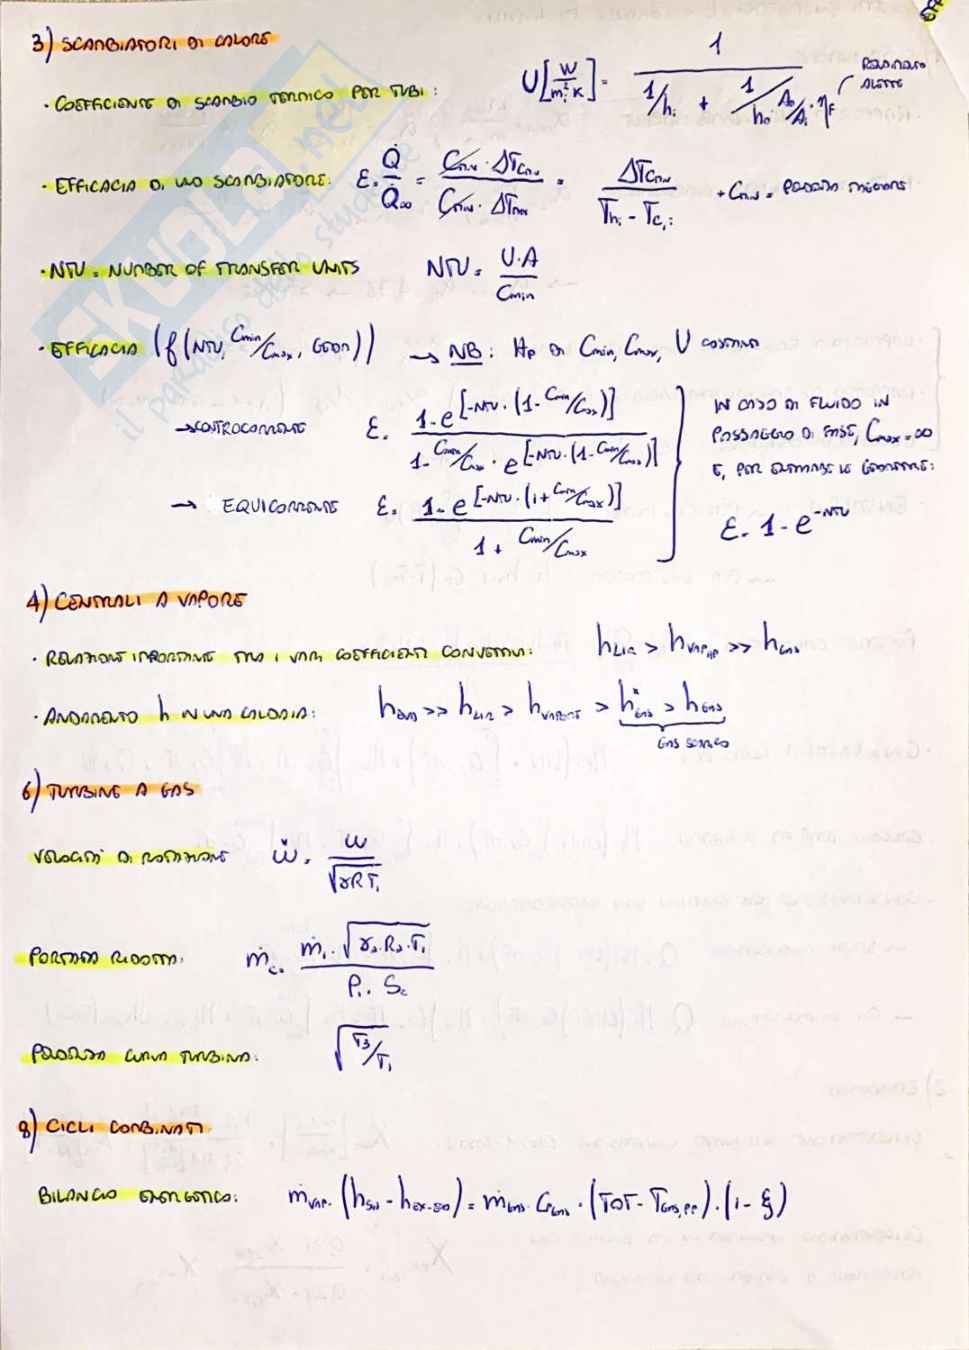 3) SCAMBIATORI DI CALORE
· COEFFICIENTE DI SCAMBIO TERMICO PER TUBI : U[W/m²ᵢK] = 1 / (1/hᵢ + 1/(h₀ · A₀/Aᵢ · ηF)) RENDIMENTO ALETTE
· EFFICACIA DI UNO SCAMBIATORE: ε = Q̇/Q̇∞ = (Cmin · ΔTCmin)/(Cmin · ΔTmax) = ΔTCmin/(Thi - Tci) → Cmin = PORTATA MINORE
· NTU = NUMBER OF TRANSFER UNITS NTU = U·A/Cmin
· EFFICACIA (f(NTU, Cmin/Cmax, GEOM)) → NB: Hp DI Cmin, Cmax, U COSTANTI
→ CONTROCORRENTE ε = (1-e^[-NTU·(1-Cmin/Cmax)])/(1-Cmin/Cmax · e^[-NTU·(1-Cmin/Cmax)])
→ EQUICORRENTE ε = (1-e^[-NTU·(1+Cmin/Cmax)])/(1+Cmin/Cmax)
IN CASO DI FLUIDO IN
PASSAGGIO DI FASE, Cmax=∞
E, PER LE GEOMETRIE:
ε = 1 - e^-NTU
4) CENTRALI A VAPORE
· RELAZIONE IMPORTANTE TRA I VARI COEFFICIENTI CONVETTIVI: hLIQ > hVAP,HP >> hGAS
· ANDAMENTO h IN UNA CALDAIA: hEVA >> hLIQ > hVAPORE > h*GAS > hGAS
GAS SCARICO
6) TURBINE A GAS
VELOCITÀ DI ROTAZIONE ω̌ = ω/√(γRT₁)
PORTATA RIDOTTA: ṁc = ṁ₁·√(γ₀·R₀·T₁)/(P₁·Sc)
CURVA TURBINA: √(T3/T₁)
8) CICLI COMBINATI
BILANCIO ENERGETICO: ṁVAP·(hSH - hex-eco) = ṁGAS·CpGAS·(TOT - TGAS,PP)·(1-ξ)
SKUOLA.net
il paradiso dello studente